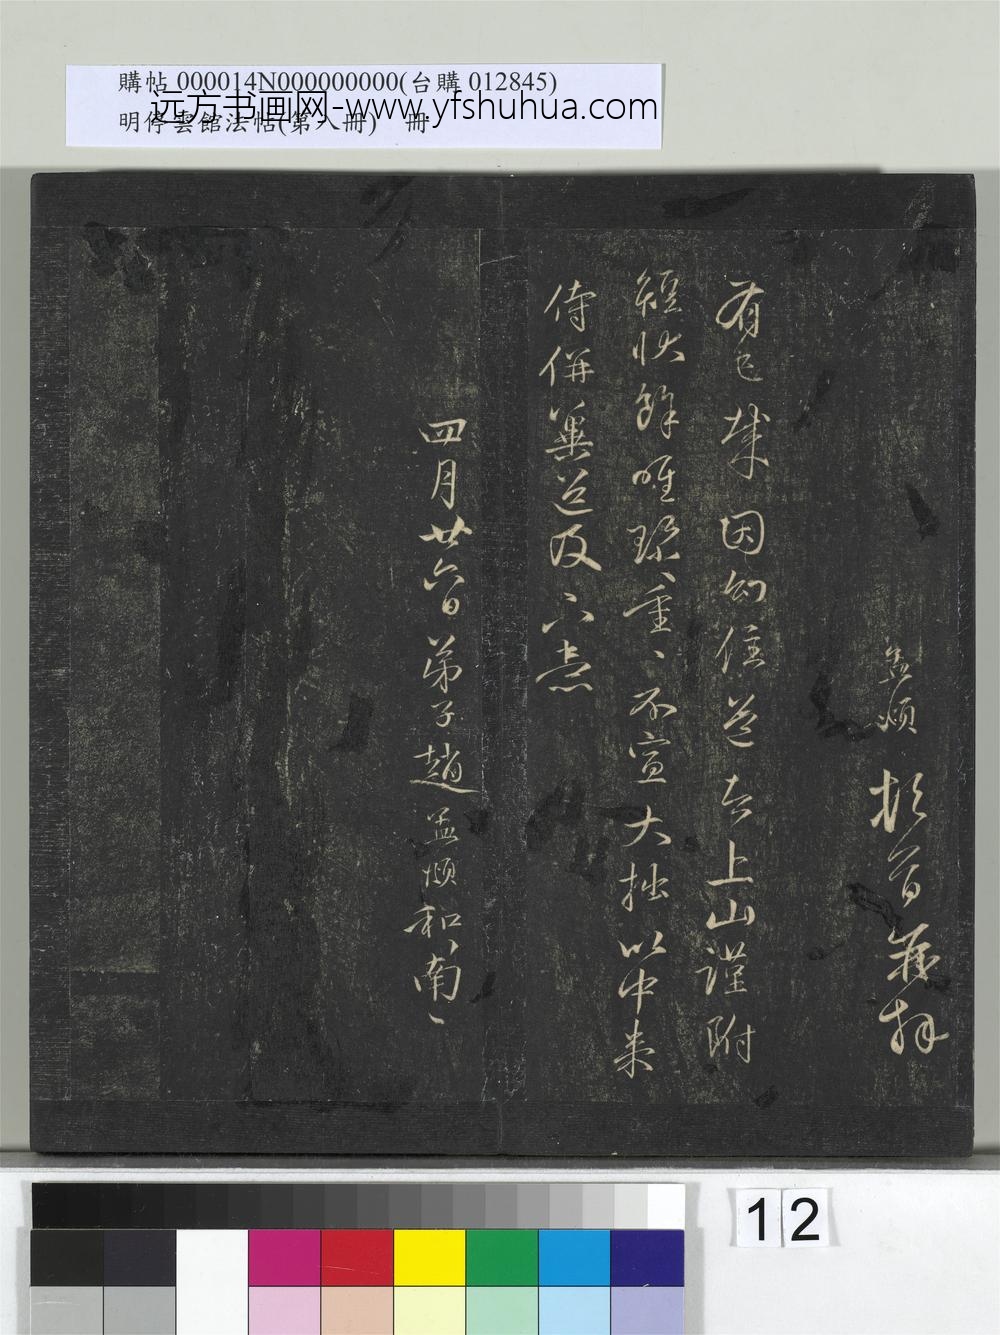 購帖 000014N000000000(台購 012845)
明停雲館法帖(第八冊) 冊
远方书画网-www.yfshuhua.com
孟頫 頓首再拜
有已成因幻住菴去上山謹附
短狀餘唯珍重、不宣大拙以中来
侍併葉道及不悉
四月廿六日弟子趙孟頫和南、
12